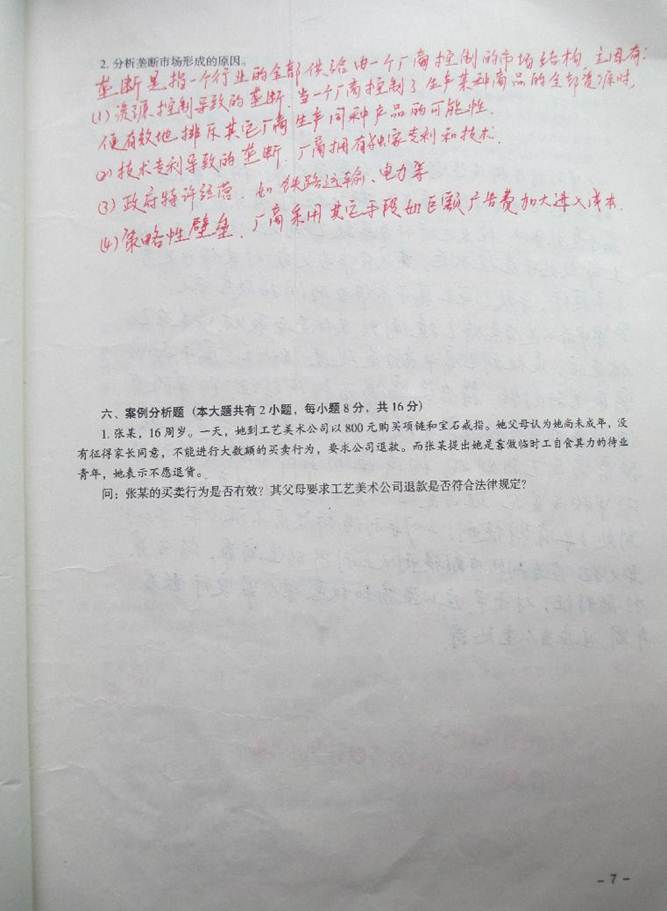 2. 分析垄断市场形成的原因。
垄断是指一个行业的全部供给由一个厂商控制的市场结构. 主因有:
(1) 资源控制导致的垄断. 当一个厂商控制了生产某种商品的全部资源时,
便有效地排斥其它厂商生产同种产品的可能性.
(2) 技术专利导致的垄断. 厂商拥有独家专利和技术.
(3) 政府特许经营. 如铁路运输、电力等
(4) 策略性壁垒. 厂商采用其它手段如巨额广告费加大进入成本.
六、案例分析题（本大题共有 2 小题，每小题 8 分，共 16 分）
1. 张某，16 周岁。一天，她到工艺美术公司以 800 元购买项链和宝石戒指。她父母认为她尚未成年，没
有征得家长同意，不能进行大数额的买卖行为，要求公司退款。而张某提出她是靠做临时工自食其力的待业
青年，她表示不愿退货。
问：张某的买卖行为是否有效？其父母要求工艺美术公司退款是否符合法律规定？
- 7 -